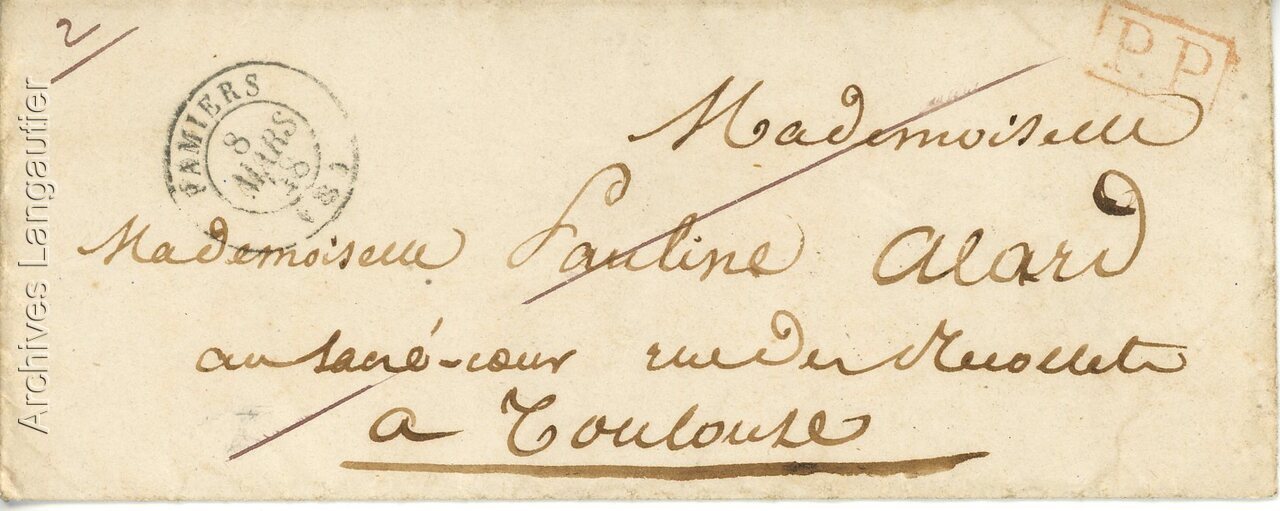 2
P.P
PAMIERS
8
MARS
48
(8)
Mademoiselle
Mademoiselle Pauline Alard
au sacré-cœur rue des Recollets
a Toulouse
Archives Langautier